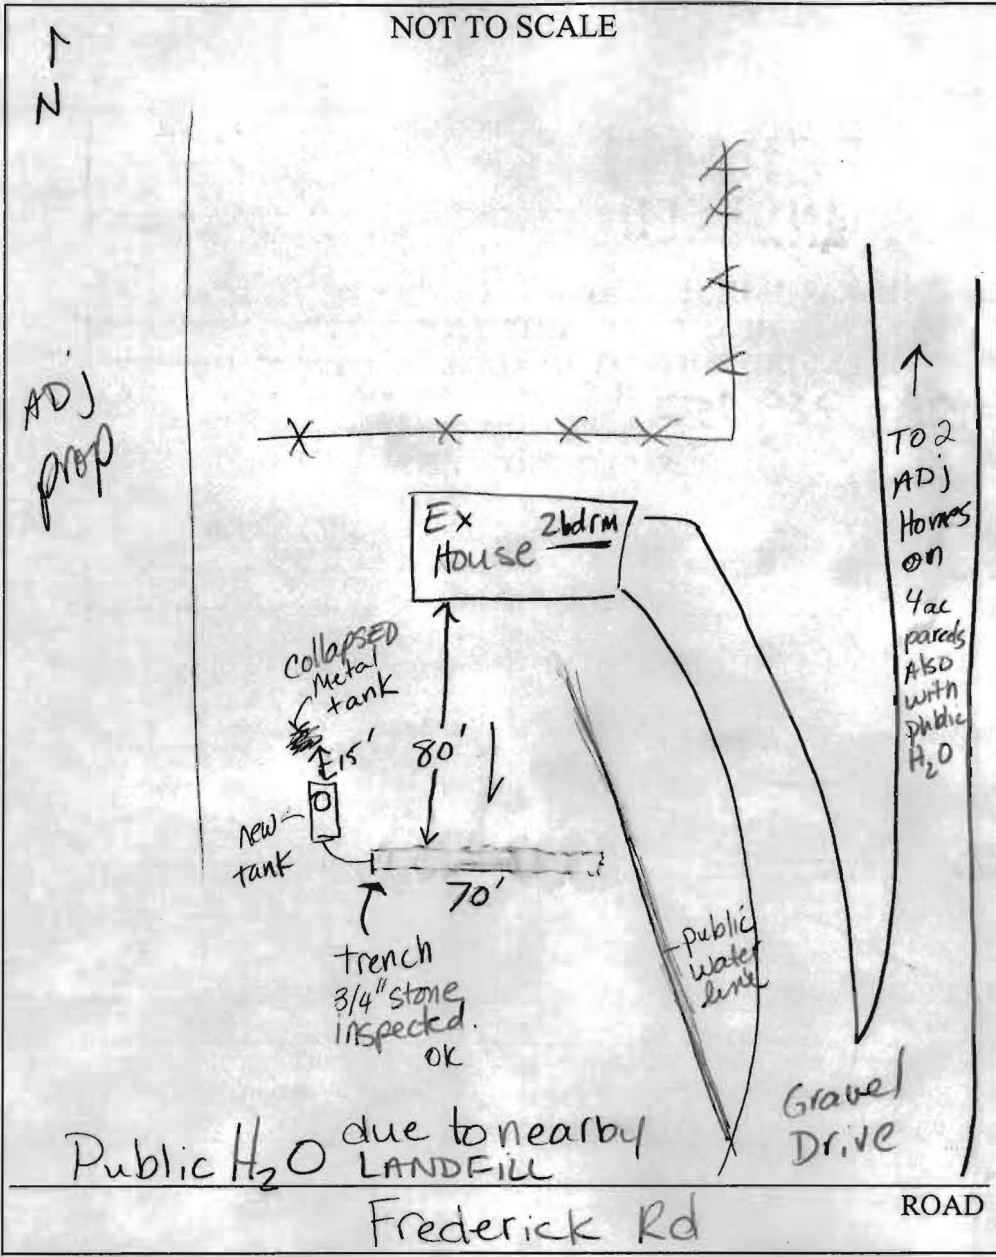 NOT TO SCALE
N
ADJ
prop
Ex
House
2bdrm
TO 2
ADJ
Homes
on
4 ac
parcels
Also
with
public
H₂O
collapsed
Metal
tank
15'
80'
new
tank
70'
trench
3/4" stone
inspected.
OK
public
water
line
Gravel
Drive
Public H₂O due to nearby
LANDFILL
ROAD
Frederick Rd